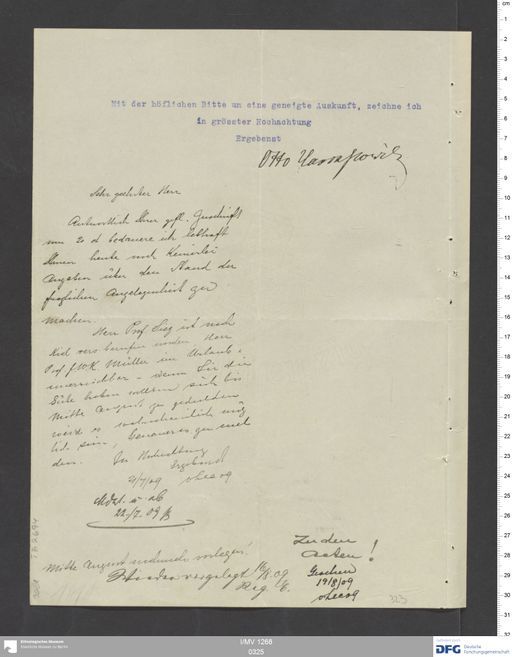 Mit der höflichen Bitte um eine geneigte Auskunft, zeichne ich
in grösster Hochachtung
Ergebenst
Otto Harrassowitz
Sehr geehrter Herr
Antwortlich Ihrer gefl. Zuschrift
vom 20 d bedauere ich lebhaft
Ihnen heute noch keinerlei
Angaben über den Stand der
fraglichen Angelegenheit zu
machen.
Herr Prof Sieg ist nach
Kiel berufen worden Herr
Prof F.W.K. Müller im Urlaub u.
unerreichbar – wenn Sie die
Güte haben wollten sich bis
Mitte August zu gedulden
wird es wahrscheinlich mög
lich sein, Genaueres zu mel
den. In Hochachtung
Ergebenst
21/7/09 vLecoq
ab
22./7. 09
Mitte August nochmals vorlegen!
vorgelegt 16/8. 09
Reg.
Zu den
Acten!
Gesehen
19/8/09
vLecoq
323
I/MV 1268
0325
Ethnologisches Museum
Staatliche Museen zu Berlin
DFG Deutsche
Forschungsgemeinschaft